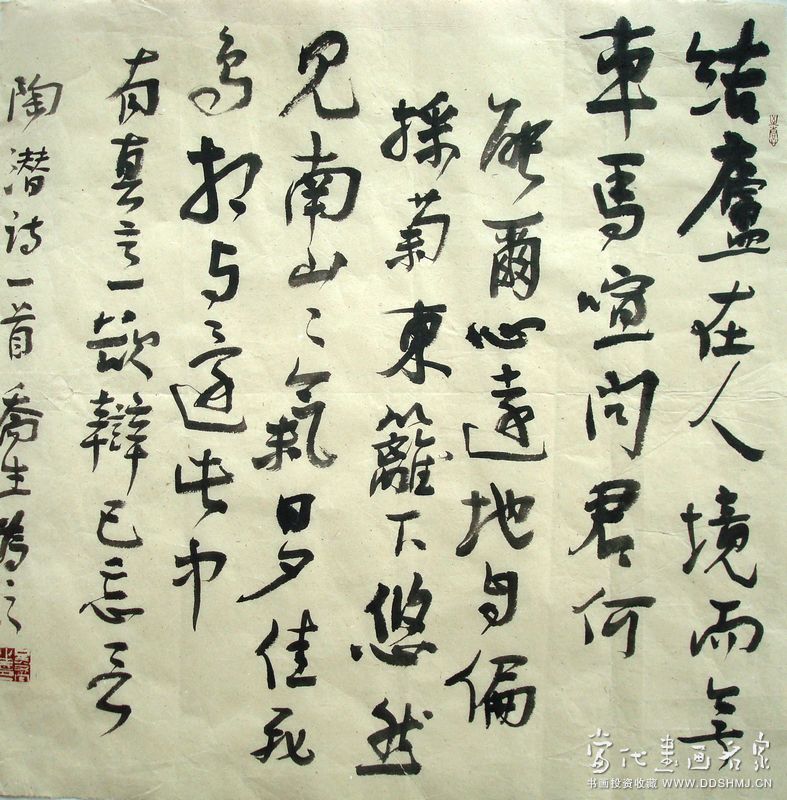 結廬在人境而無
車馬喧問君何
能爾心遠地自偏
採菊東籬下悠然
見南山〻氣日夕佳飛
鳥相与還此中
有真意欲辯已忘言
陶潜诗一首 喬生
當代書画名家
书画投资收藏 WWW.DDSHMJ.CN